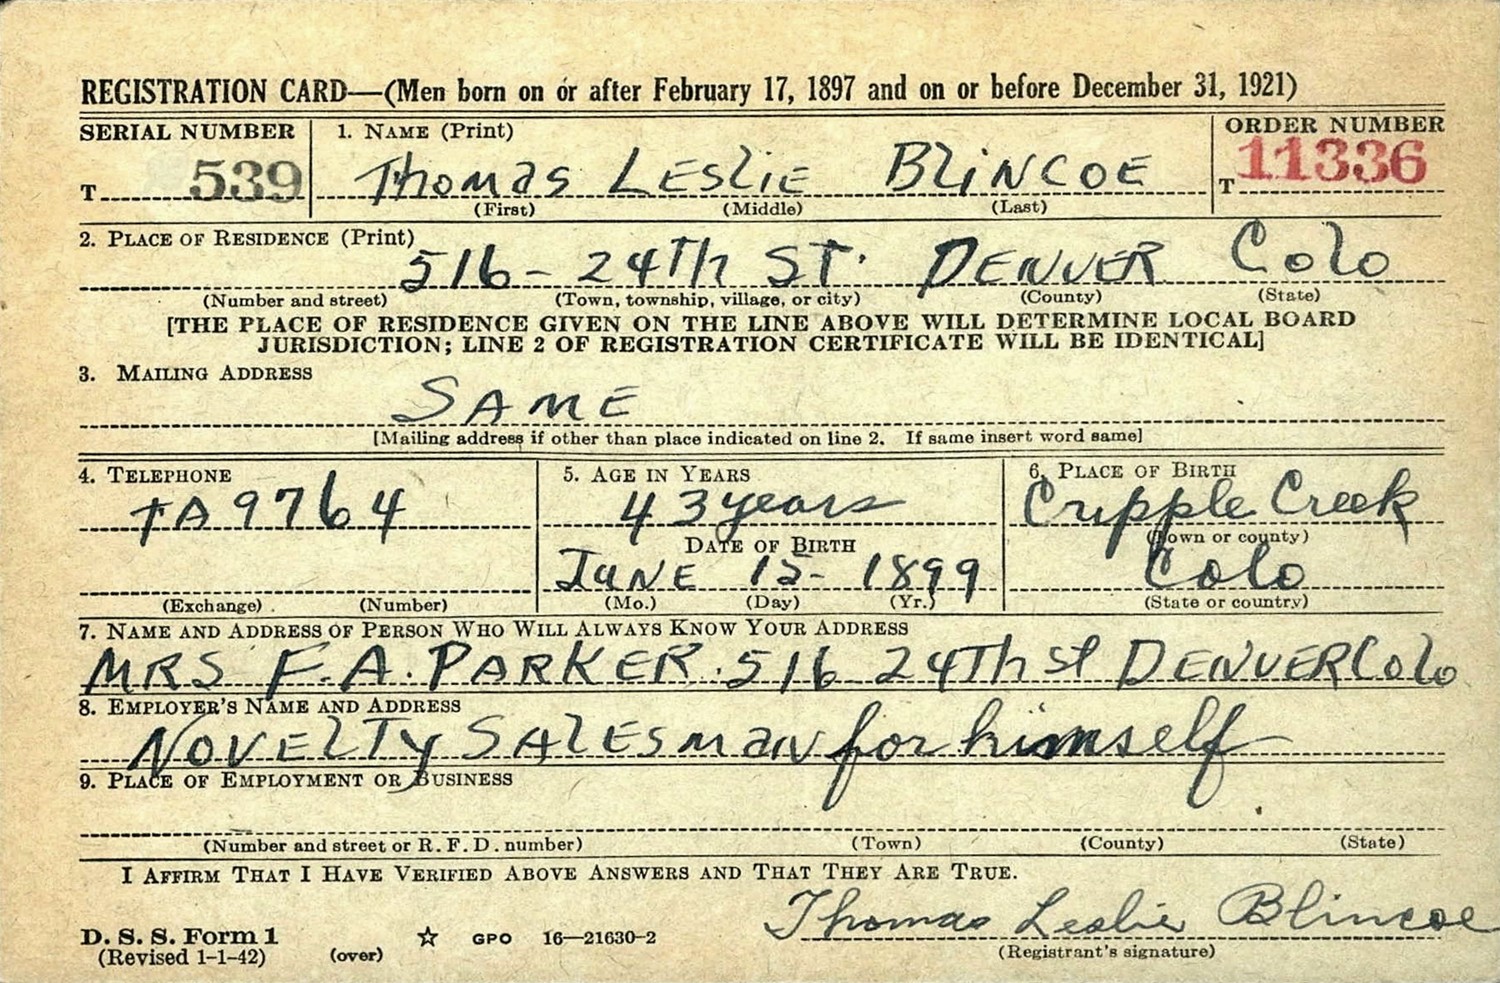 REGISTRATION CARD—(Men born on or after February 17, 1897 and on or before December 31, 1921)
SERIAL NUMBER 1. NAME (Print) ORDER NUMBER
T 539 Thomas LESLIE BLINCOE T 11336
(First) (Middle) (Last)
2. PLACE OF RESIDENCE (Print)
516 - 24Th ST. DENVER Colo
(Number and street) (Town, township, village, or city) (County) (State)
[THE PLACE OF RESIDENCE GIVEN ON THE LINE ABOVE WILL DETERMINE LOCAL BOARD
JURISDICTION; LINE 2 OF REGISTRATION CERTIFICATE WILL BE IDENTICAL]
3. MAILING ADDRESS
SAME
[Mailing address if other than place indicated on line 2. If same insert word same]
4. TELEPHONE 5. AGE IN YEARS 6. PLACE OF BIRTH
TA 9764 43 years Cripple Creek
DATE OF BIRTH (Town or county)
JUNE 15- 1899 Colo
(Exchange) (Number) (Mo.) (Day) (Yr.) (State or country)
7. NAME AND ADDRESS OF PERSON WHO WILL ALWAYS KNOW YOUR ADDRESS
MRS F.A. PARKER. 516 24Th St DENVER Colo
8. EMPLOYER'S NAME AND ADDRESS
NOVELTY SALESMAN for himself
9. PLACE OF EMPLOYMENT OR BUSINESS
(Number and street or R. F. D. number) (Town) (County) (State)
I AFFIRM THAT I HAVE VERIFIED ABOVE ANSWERS AND THAT THEY ARE TRUE.
Thomas Leslie Blincoe
D. S. S. Form 1 ☆ GPO 16—21630-2
(Revised 1-1-42) (over) (Registrant's signature)